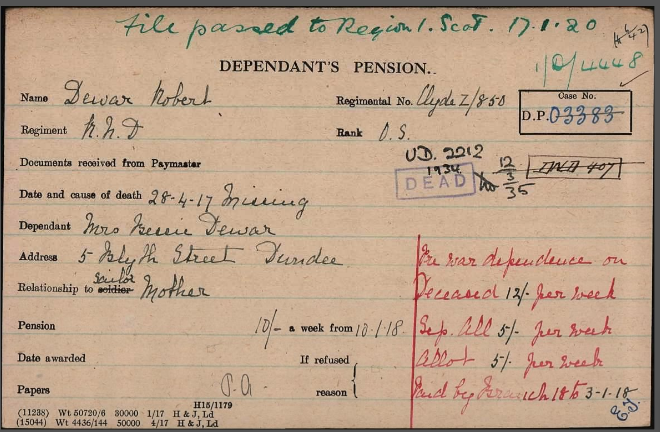 File passed to Region 1. Scot. 17.1.20
1/0/4448
DEPENDANT'S PENSION.
Name Dewar Robert Regimental No. Clyde Z/850 Case No.
Regiment R.N.D Rank O.S. D.P. 03383
Documents received from Paymaster U.D. 2212
1934 DEAD 12/3/35
Date and cause of death 28-4-17 Missing
Dependant Mrs Bessie Dewar
Address 5 Blyth Street Dundee
sailor
Relationship to soldier Mother
Pension 10/- a week from 10-1-18.
Date awarded If refused
Papers P.A. reason
H15/1179
(11238) Wt 50720/6 30000 1/17 H & J, Ld
(15044) Wt 4436/144 50000 4/17 H & J, Ld
Pre war dependence on
Deceased 12/- per week
Sep. All 5/- per week
Allot 5/- per week
Paid by Branch 18 to 3-1-18